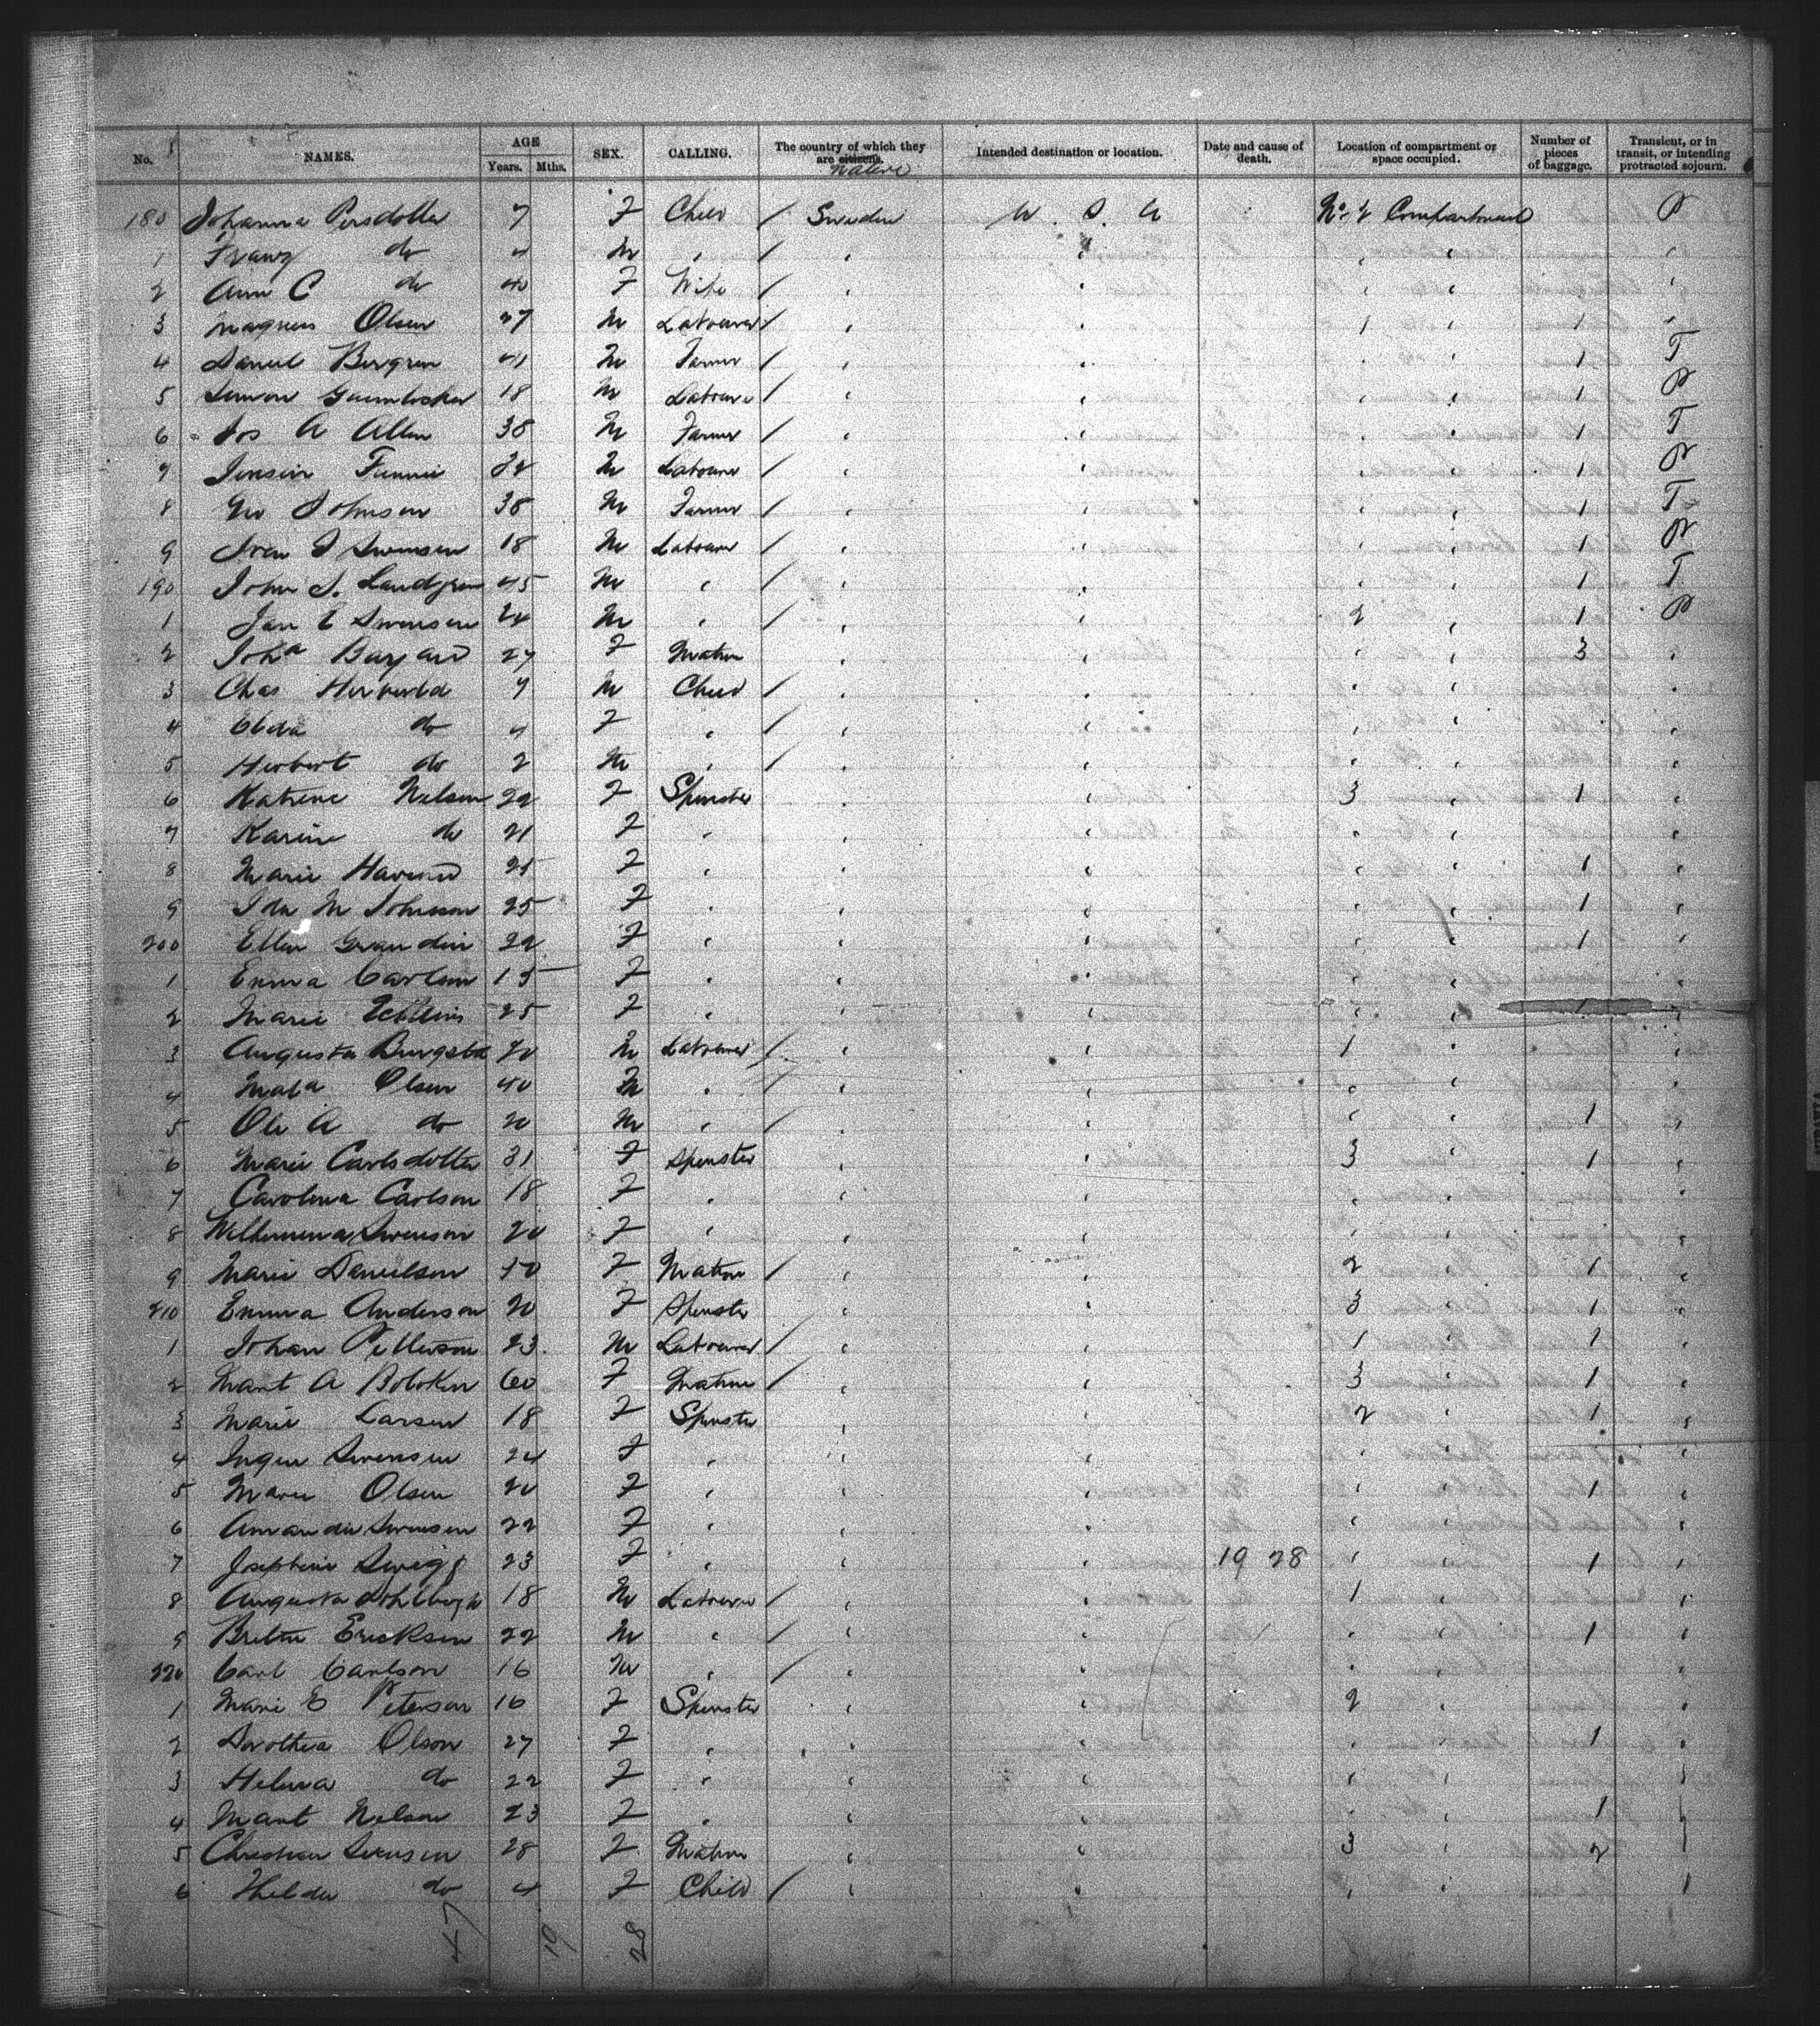 No. NAMES. AGE Years. Mths. SEX. CALLING. The country of which they are citizens. Native Intended destination or location. Date and cause of death. Location of compartment or space occupied. Number of pieces of baggage. Transient, or in transit, or intending protracted sojourn.
180 Johanna Persdotter 7 F Child / Sweden U. S. A No. 2 Compartment P
1 Franz do 4 M " /
2 Ann C do 40 F Wife /
3 Magnus Olsen 27 M Labourer / 1 1
4 Daniel Bergren 41 M Farmer / 1 T
5 18 M Labourer / 1 P
6 Jos A Allen 38 M Farmer / 1 T
7 M Labourer / 1 P
8 Johnson 38 M Farmer / 1 T
9 Swensen 18 M Labourer / 1 P
190 John S. Lundgren 45 M " / 1 T
1 Jan E Swensen 24 M " / 2 1 P
2 Joha 27 F Matron 3
3 Chas 7 M Child /
4 do 4 F " /
5 Herbert do 2 M " /
6 Katrine Nelson 22 F Spinster 3 1
7 Karine do 21 F "
8 Marie 25 F " 1
9 Ida M Johnson 25 F " 1
200 Ellen Grandin 22 F " 1
1 Emma Carlson 15 F "
2 Marie 25 F " 1
3 Augusta M Labourer / 1
4 Mata Olsen 40 " /
5 Ole A do 20 M " / 1
6 Marie Carlsdotter 31 F Spinster 3 1
7 Carolina Carlson 18 F "
8 Wilhemina Swenson 20 F "
9 Marie Danielson 50 F Matron / 2 1
210 Emma Anderson 20 F Spinster 3 1
1 Johan Petterson 23 M Labourer / 1 1
2 A 60 F Matron / 3 1
3 Marie Larsen 18 F Spinster 2 1
4 Inger Swensen 24 F "
5 Marie Olsen 20 F " 1
6 Amanda Swensen 22 F "
7 Josephine 23 F " 19 28 1
8 Augusta 18 M Labourer / 1
9 Erickson 22 M " / 1
220 Carl Carlson 16 M " /
1 Marie E Peterson 16 F Spinster 2
2 Dorothea Olson 27 F " 1
3 Helena do 22 F "
4 Nelson 23 F " 1
5 28 F Matron 3 2
6 Hilda do 4 F Child /
47 19 28